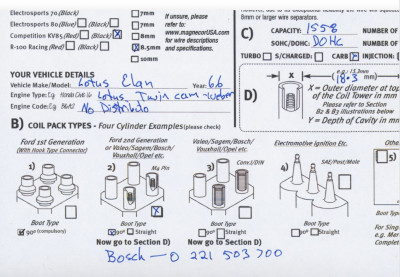 Electrosports 70 (Black) 7mm
Electrosports 80 (Blue) (Black) 7mm
Competition KV85 (Red) (Black) 8mm
R-100 Racing (Red) (Black) 8.5mm
10mm
If unsure, please
refer to:
www.magnecor.com
for wire descriptions
and specifications.
8mm or larger wire separators.
C) CAPACITY: 1558 NUMBER OF
SOHC/DOHC: DOHC NUMBER OF
TURBO S/CHARGED: CARB INJECTION:
YOUR VEHICLE DETAILS
Vehicle Make/Model: Lotus Elan Year: 66
Engine Type: Lotus Twin cam - weber
Engine Code:
D)
X
18.3 mm
X = Outer diameter at top
of the Coil Tower in mm
Please refer to Section
B2 & B3 illustrations below
Y = Depth of Cavity in mm
B) COIL PACK TYPES - Four Cylinder Examples (please check)
Ford 1st Generation
(With Hook Type Connector)
1)
Boot Type
90° (compulsory)
Ford 2nd Generation
or Valeo/Sagem/Bosch/
Vauxhall/Opel etc.
2)
M4 Pin
Boot Type
90° Straight
Now go to Section D)
Valeo/Sagem/Bosch/
Vauxhall/Opel etc.
3)
Conv/DIN
Boot Type
90° Straight
Now go to Section D)
Electromotive Ignition Etc.
4)
SAE/Post/Male
Boot Type
90° Straight
5)
Boot Type
For Sing
e.g. Mer
Comple
Bosch - 0 221 503 700